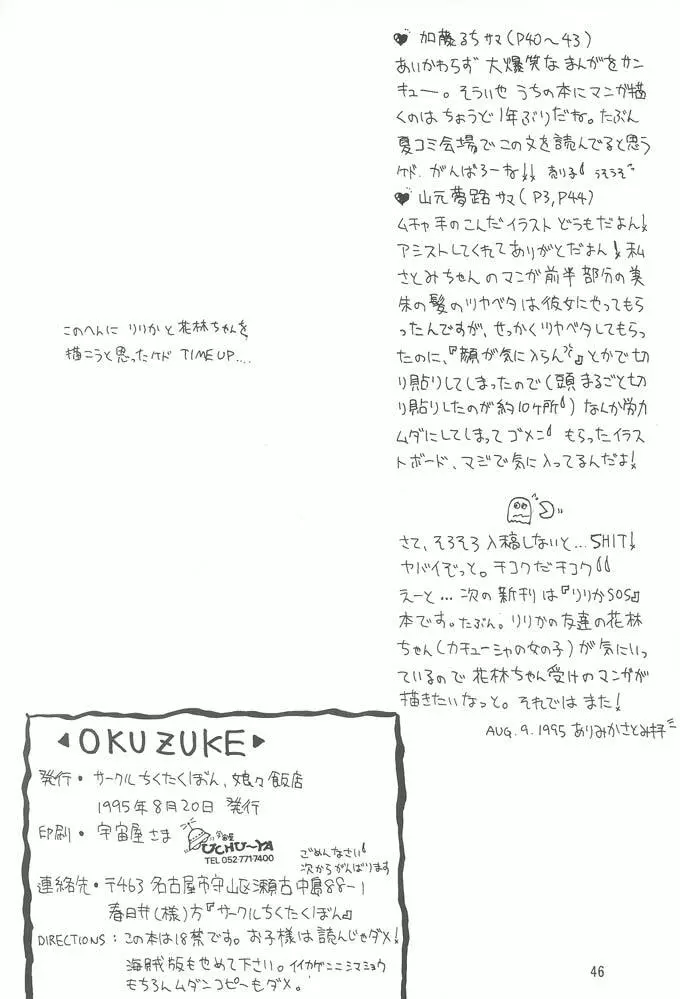 ♥ 加藤るちサマ(P40〜43)
あいかわらず 大爆笑なまんがをサン
キュー。そういや うちの本にマンガ描
くのは ちょうど1年ぶりだね。たぶん
夏コミ会場で この文を読んでると思う
ケド、がんばろーね!! 売り子 うそうそ
♥ 山元夢路サマ(P3,P44)
ムチャ手のこんだイラスト どうもだよん!
アシストしてくれてありがとだよん! 私
さとみちゃんのマンガ前半部分の美
朱の髪のツヤベタは彼女にやってもら
ったんですが、せっかくツヤベタしてもらっ
たのに、『顔が気に入らん』とかで切
り貼りしてしまったので(頭まるごと切
り貼りしたのが約10ヶ所)なんか労力
ムダにしてしまってゴメン もらったイラス
トボード、マジで気に入ってるんだよ!
このへんに りりかと花林ちゃんを
描こうと思ったケド TIME UP....
さて、そろそろ入稿しないと…SHIT!
ヤバイぞっと。チコクだチコク
えーと…次の新刊は『りりかSOS』
本です。たぶん。りりかの友達の花林
ちゃん(カチューシャの女の子)が気にいっ
ているので 花林ちゃん受けのマンガが
描きたいなっと。それでは また!
AUG.9.1995 ありみかさとみ拝
◀OKUZUKE▶
発行・サークルちくたくぼん、娘々飯店
1995年8月20日 発行
印刷・宇宙屋さま
宇宙屋
UCHU〜YA
TEL 052-771-7400
ごめんなさい
次からがんばります
連絡先・〒463 名古屋市守山区瀬古中島88-1
春日井(様)方『サークルちくたくぼん』
DIRECTIONS:この本は18禁です。お子様は読んじゃダメ!
海賊版もやめて下さい。イイカゲンニシマショウ
もちろんムダンコピーもダメ。
46